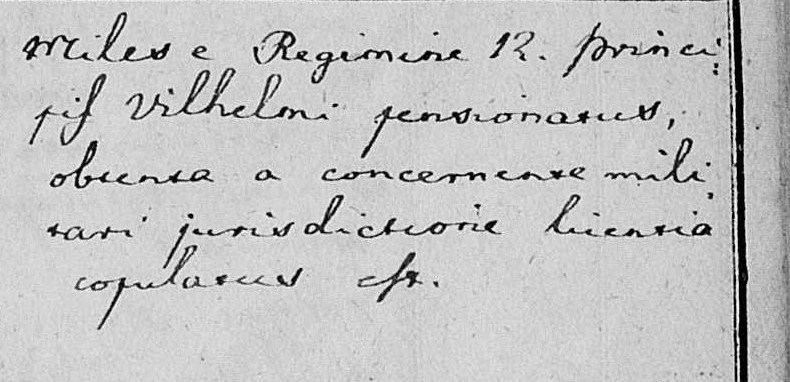 Miles e Regimine 12. Princi:
pis Vilhelmi pensionatus,
obtenta a concernente mili:
tari jurisdictione licentia
copulatus est.